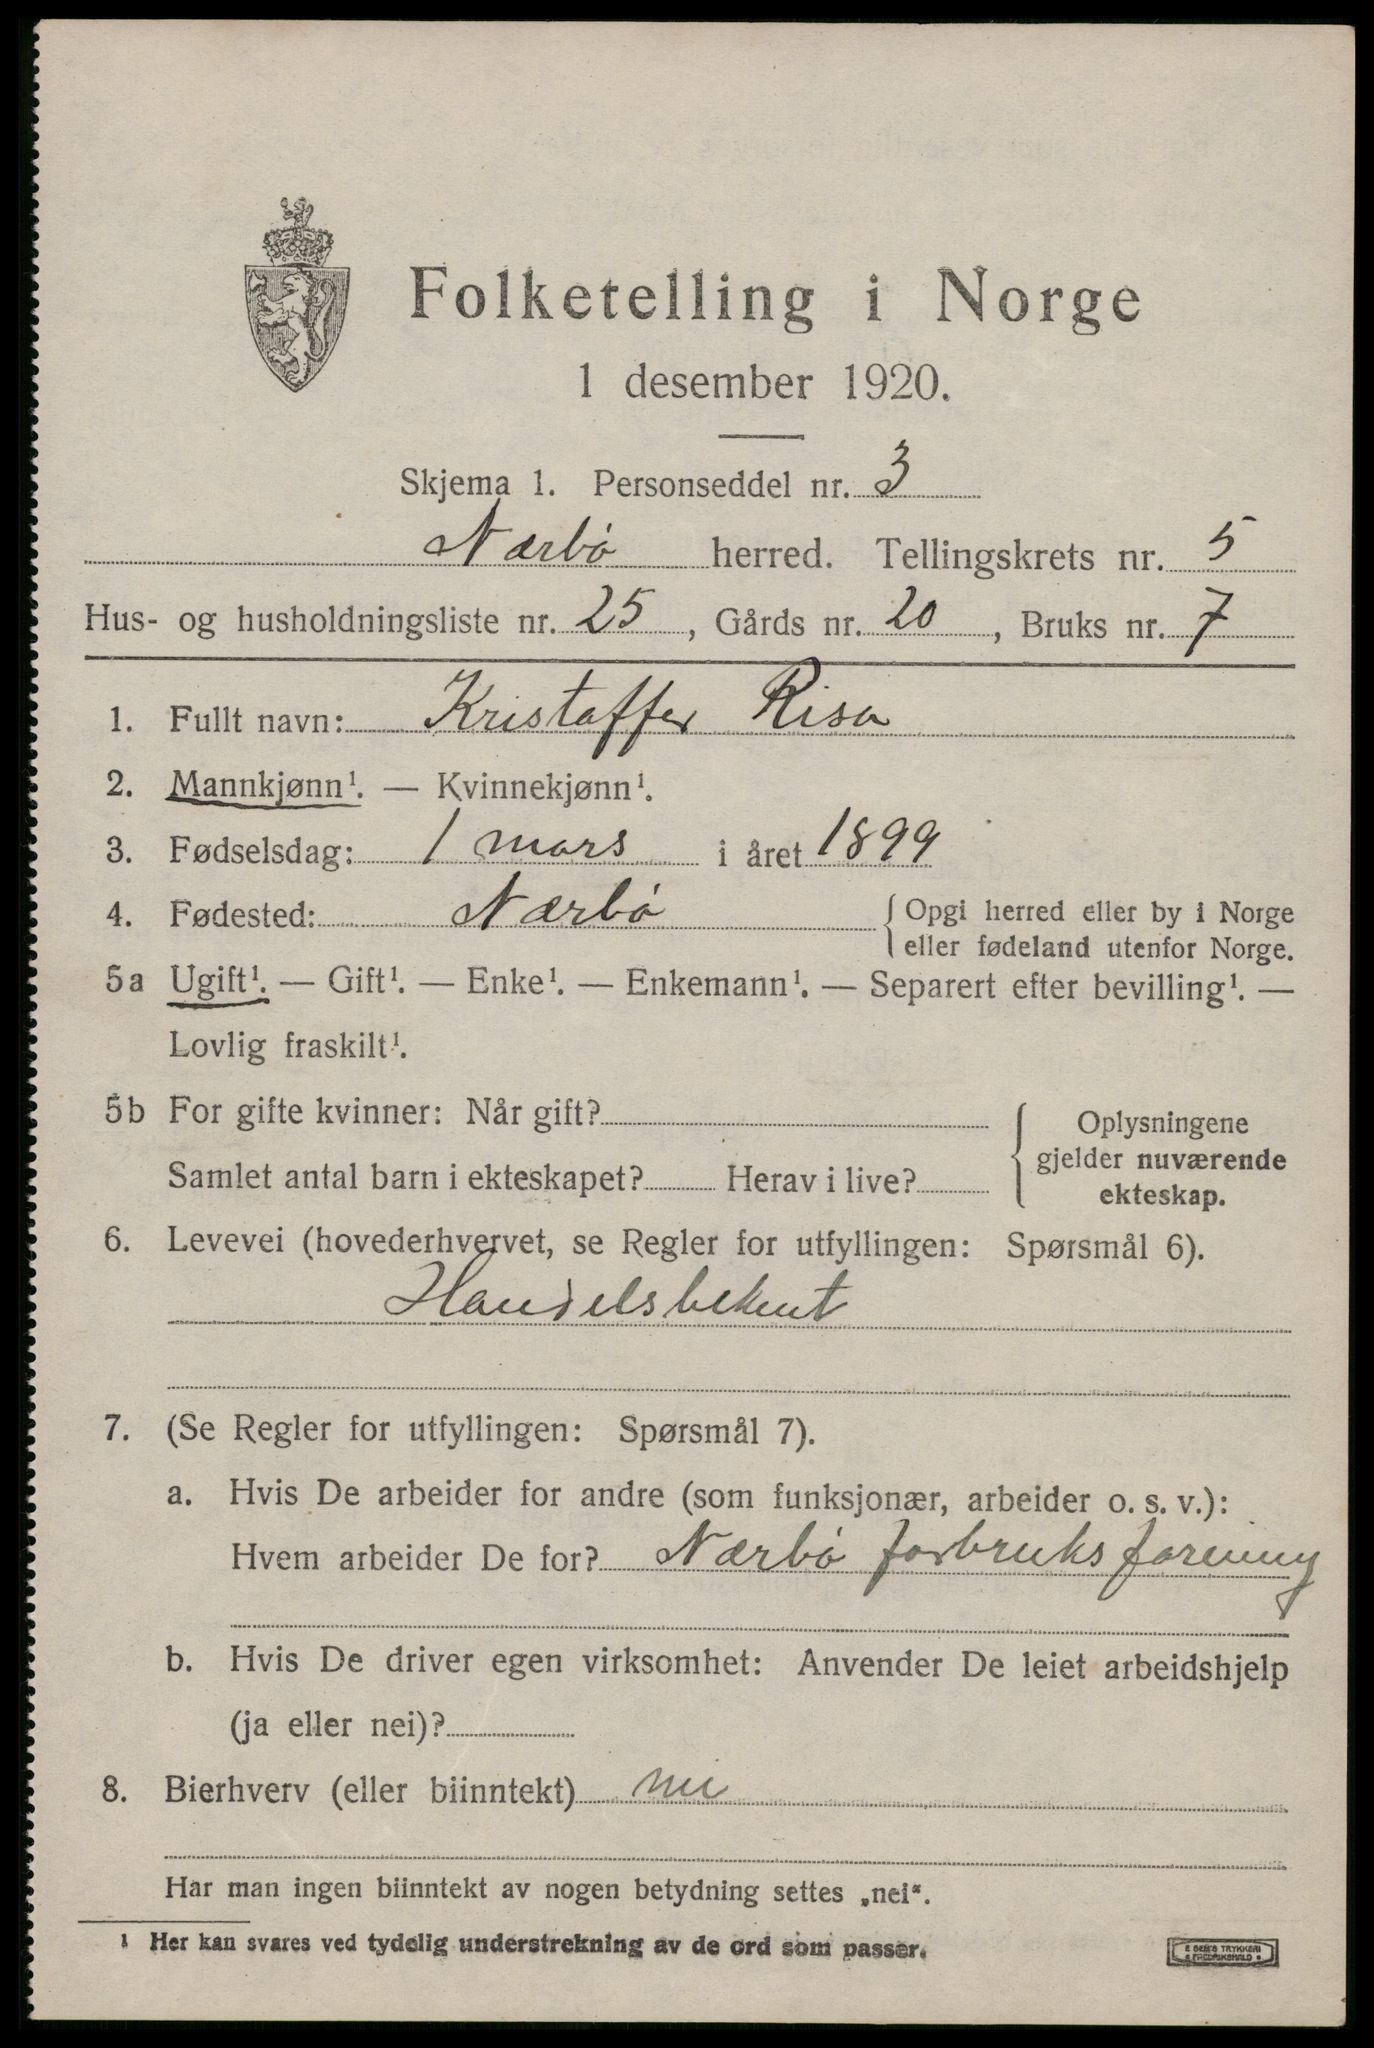 Folketelling i Norge
1 desember 1920.
Skjema 1. Personseddel nr. 3
Nærbö herred. Tellingskrets nr. 5
Hus- og husholdningsliste nr. 25, Gårds nr. 20, Bruks nr. 7
1. Fullt navn: Kristoffer Risa
2. Mannkjønn¹. — Kvinnekjønn¹.
3. Fødselsdag: 1 mars i året 1899
4. Fødested: Nærbö { Opgi herred eller by i Norge
eller fødeland utenfor Norge.
5a Ugift¹. — Gift¹. — Enke¹. — Enkemann¹. — Separert efter bevilling¹. —
Lovlig fraskilt¹.
5b For gifte kvinner: Når gift?
Samlet antal barn i ekteskapet? Herav i live?
{ Oplysningene
gjelder nuværende
ekteskap.
6. Levevei (hovederhvervet, se Regler for utfyllingen: Spørsmål 6).
Handelsbetjent
7. (Se Regler for utfyllingen: Spørsmål 7).
a. Hvis De arbeider for andre (som funksjonær, arbeider o. s. v.):
Hvem arbeider De for? Nærbö forbruksforening
b. Hvis De driver egen virksomhet: Anvender De leiet arbeidshjelp
(ja eller nei)?
8. Bierhverv (eller biinntekt) nei
Har man ingen biinntekt av nogen betydning settes „nei“.
¹ Her kan svares ved tydelig understrekning av de ord som passer.
E SEM'S TRYKKERI
FREDRIKSHALD